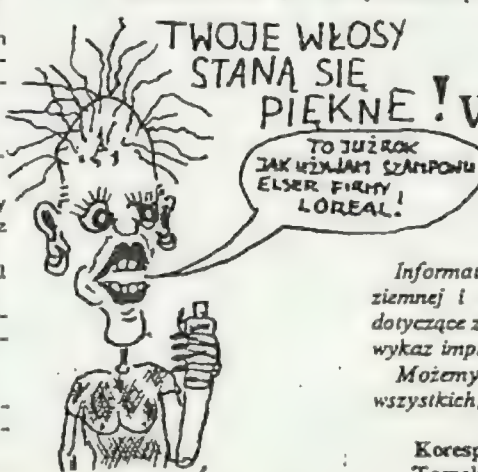 TWOJE WŁOSY
STANĄ SIĘ
PIĘKNE!
TO JUŻ ROK
JAK UŻYWAM SZAMPONU
ELSER FIRMY
LOREAL!
Informa
ziemnej i
dotyczące z
wykaz imp
Możemy
wszystkich,
Koresp